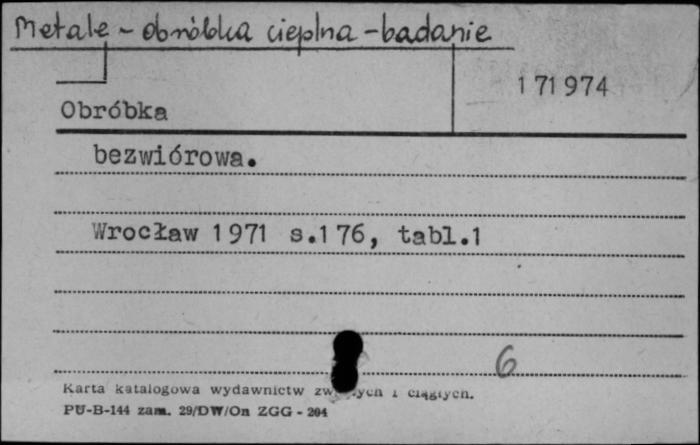 Metale - obróbka cieplna - badanie
171974
Obróbka
bezwiórowa.
Wrocław 1971 s.176, tabl.1
6
Karta katalogowa wydawnictw i ciągłych.
PU-B-144 zam. 29/DW/On ZGG - 204